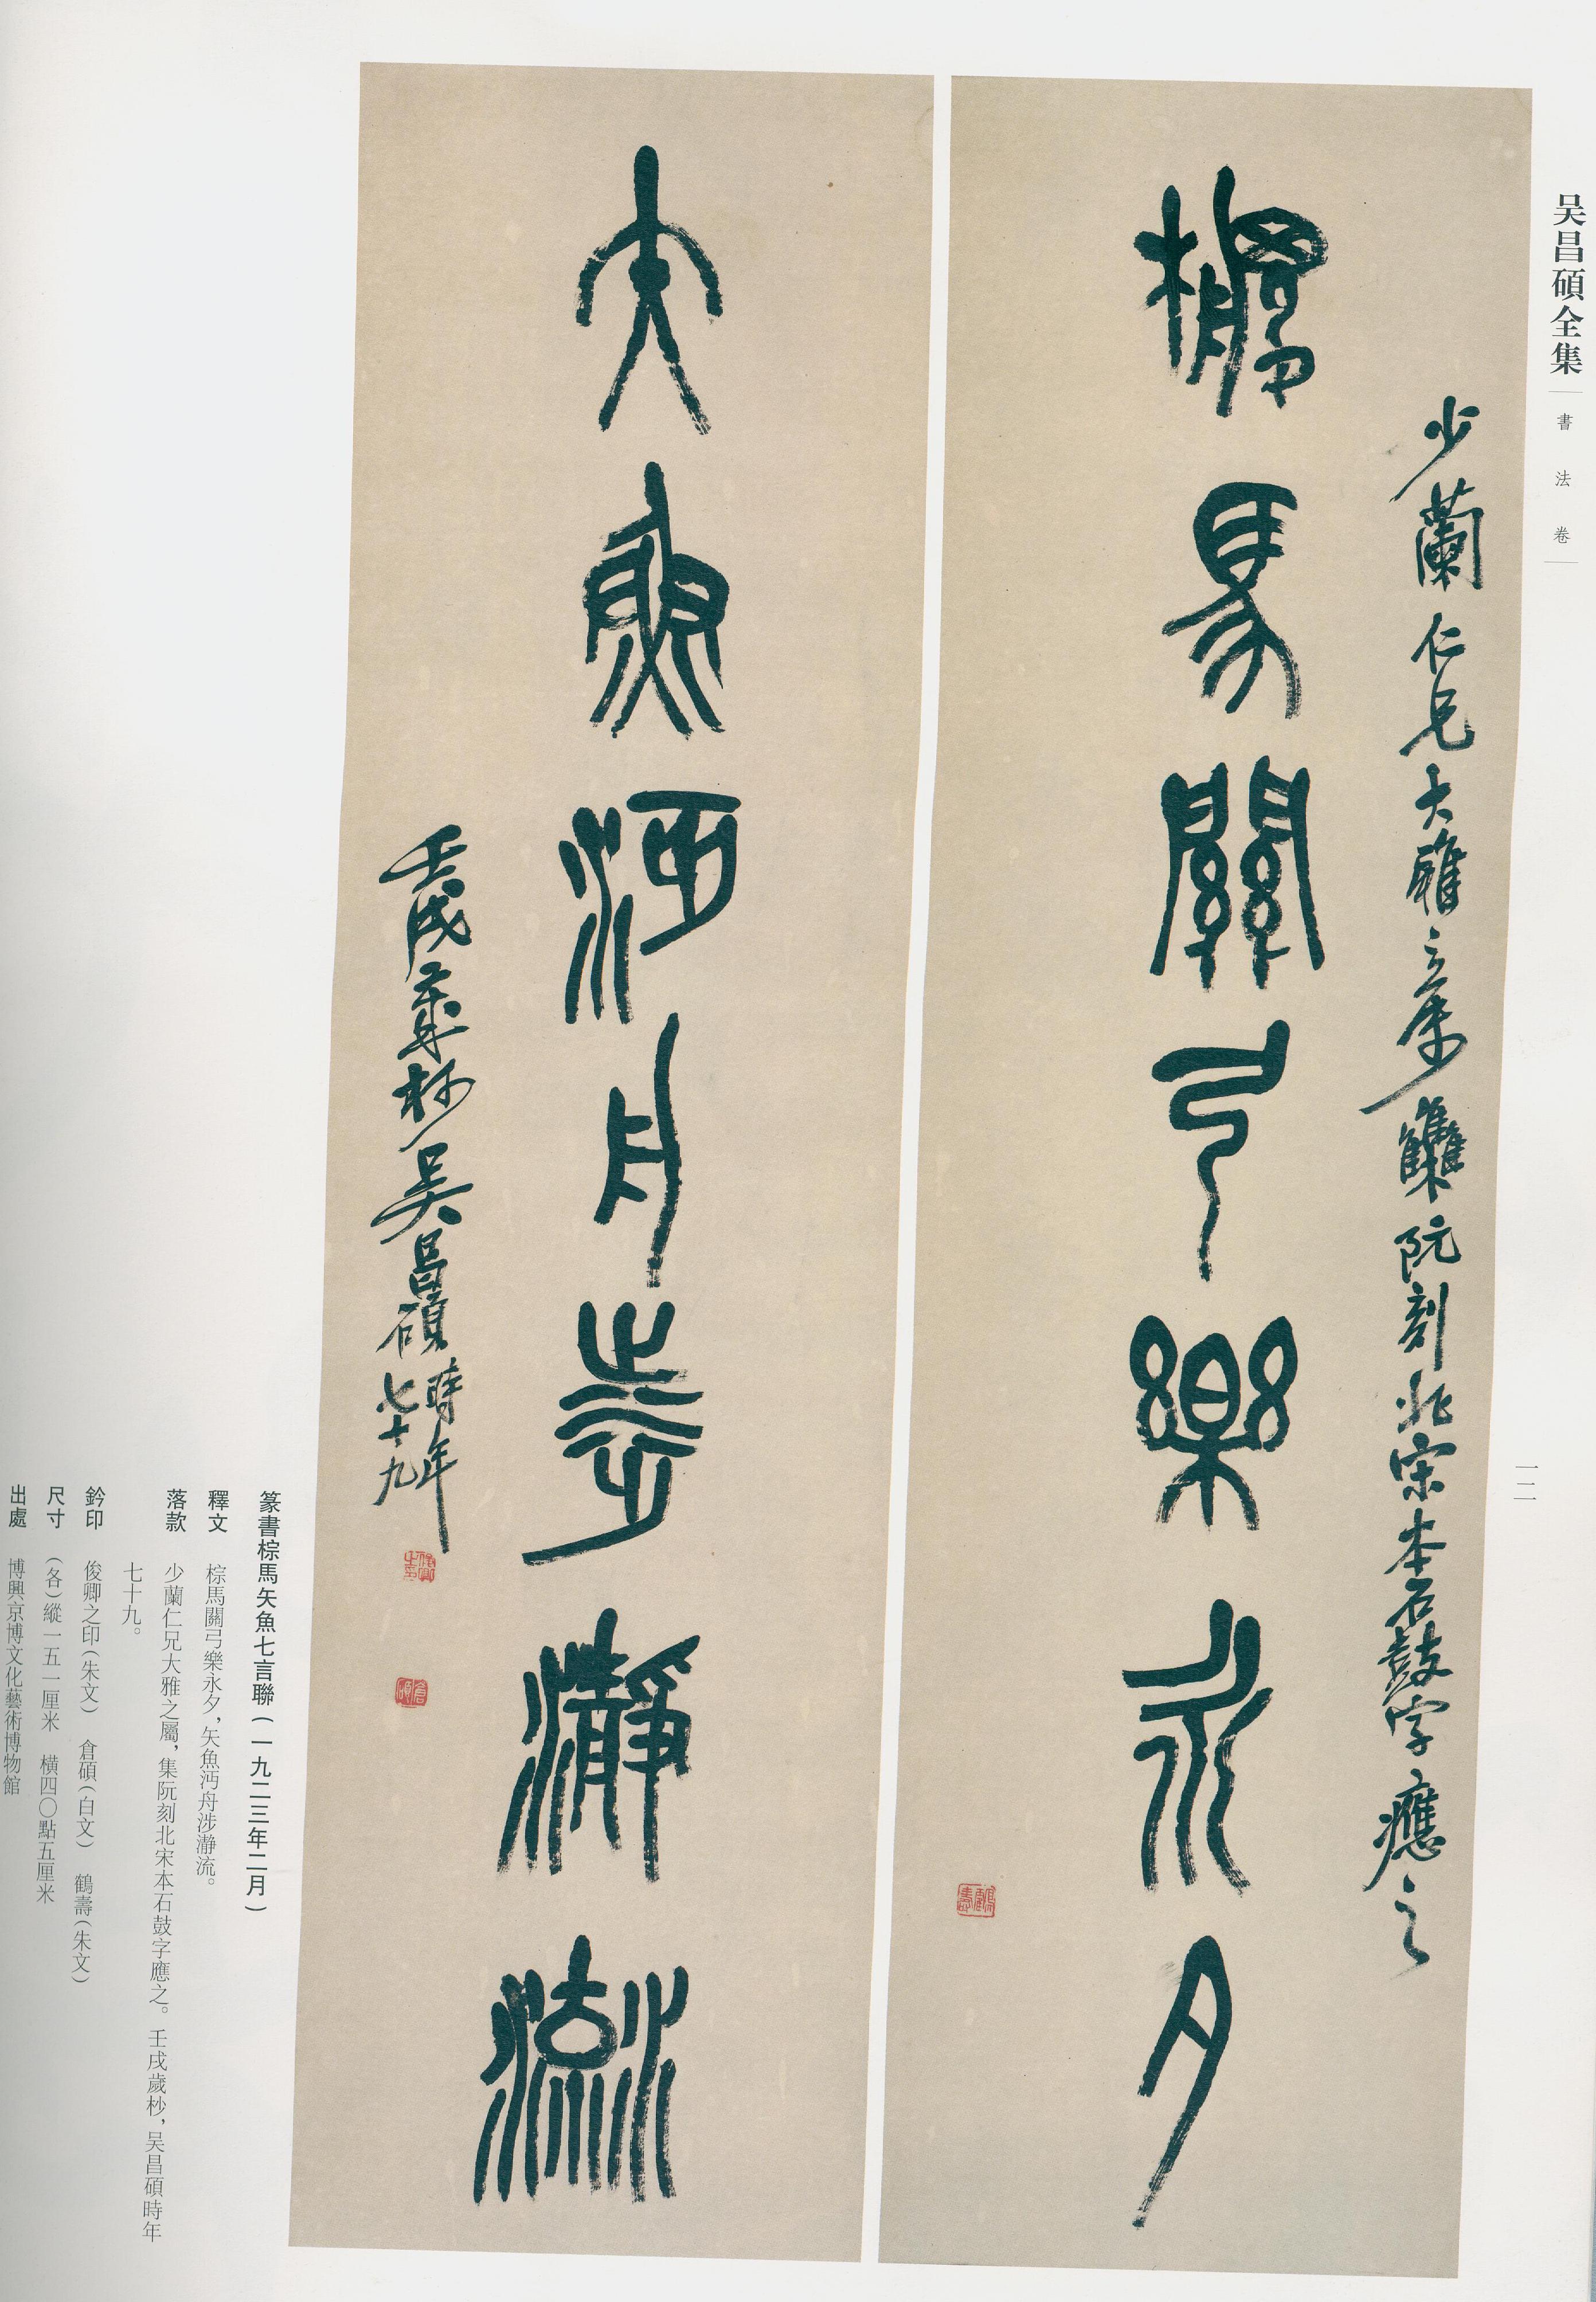 吴昌碩全集
書法卷
一二
少蘭仁兄大雅之屬集阮刻北宋本石鼓字應之
棕馬關弓樂永夕
矢魚沔舟涉瀞流
壬戌歲杪吴昌碩時年七十九
俊卿之印
倉碩
鶴壽
篆書棕馬矢魚七言聯(一九二三年二月)
釋文 棕馬關弓樂永夕,矢魚沔舟涉瀞流。
落款 少蘭仁兄大雅之屬,集阮刻北宋本石鼓字應之。壬戌歲杪,吴昌碩時年
七十九。
鈐印 俊卿之印(朱文) 倉碩(白文) 鶴壽(朱文)
尺寸 (各)縱一五一厘米 橫四〇點五厘米
出處 博興京博文化藝術博物館